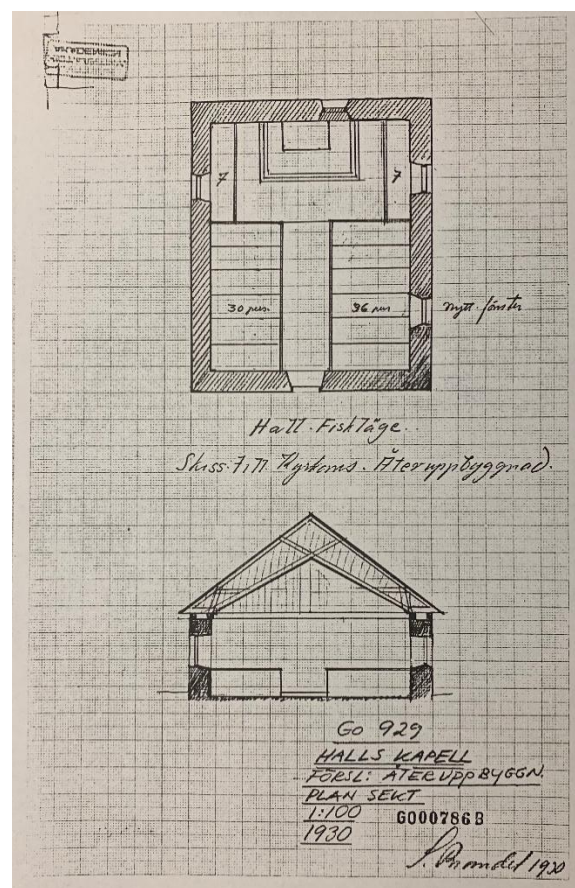 7 7
30 pers. 36 pers nytt fönster
Hall. Fiskläge.
Skiss till Kyrkans. Återuppbyggnad.
Go 929
HALLS KAPELL
FÖRSL: ÅTERUPPBYGGN.
PLAN SEKT
1:100 G000786B
1930
1930